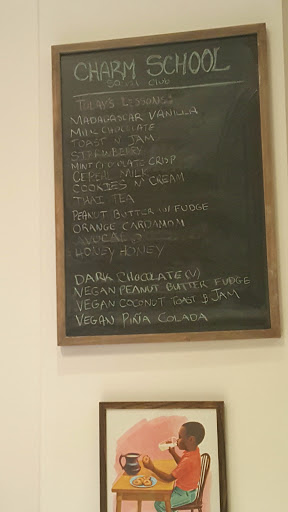 CHARM SCHOOL
CLUB
TODAY'S LESSONS
MADAGASCAR VANILLA
MILK CHOCOLATE
TOAST N JAM
STRAWBERRY
MINT CHOCOLATE CRISP
CEREAL MILK
COOKIES N' CREAM
THAI TEA
PEANUT BUTTER W/ FUDGE
ORANGE CARDAMOM
HONEY HONEY
DARK CHOCOLATE (V)
VEGAN PEANUT BUTTER FUDGE
VEGAN COCONUT TOAST & JAM
VEGAN PIÑA COLADA